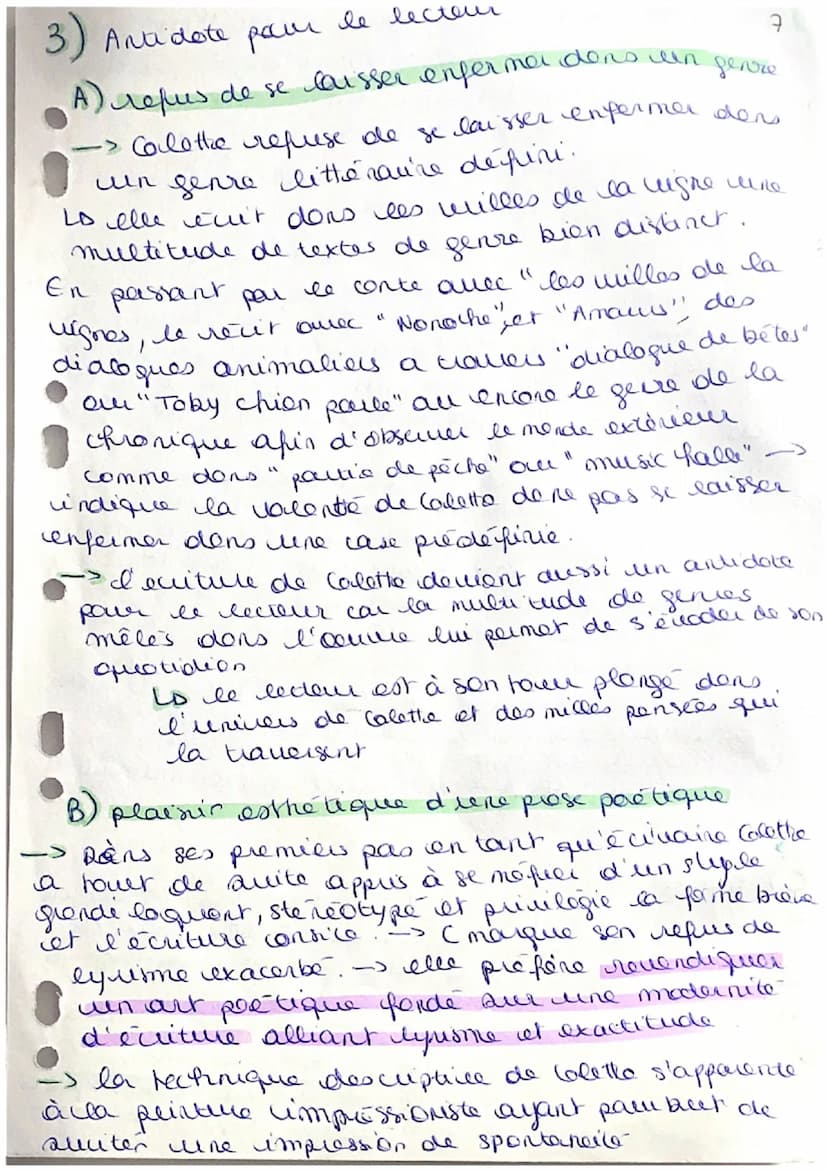 7
3) Antidote pour le lecteur
A) refus de se laisser enfermer dans un genre
-> Colette refuse de se laisser enfermer dans
un genre littéraire défini.
↳ elle écrit dans les vrilles de la vigne une
multitude de textes de genre bien distinct.
En passant par le conte avec "les vrilles de la
vignes, le récit avec "Nonoche", et "Amours", des
dialogues animaliers a travers "dialogue de bêtes"
ou "Toby chien parle" ou encore le genre de la
chronique afin d'observer le monde extérieur
comme dans "partie de pêche" ou "music halls" ->
indique la volonté de Colette de ne pas se laisser
enfermer dans une case prédéfinie.
-> l'écriture de Colette devient aussi un antidote
pour le lecteur car la multitude de genres
mêlés dans l'oeuvre lui permet de s'évader de son
quotidien
↳ le lecteur est à son tour plongé dans
l'univers de Colette et des milles pensées qui
la traversent
B) plaisir esthétique d'une prose poétique
-> Dans ses premiers pas en tant qu'écrivaine Colette
a tout de suite appris à se méfier d'un style
grandeloquent, stéréotypé et privilégie la forme brève
et l'écriture consice. -> C marque son refus de
lyrisme exacerbé. -> elle préfère revendiquer
un art poétique fondé sur une modernité
d'écriture alliant lyrisme et exactitude
-> la technique descriptive de Colette s'apparente
à la peinture impressioniste ayant pour but de
susciter une impression de spontaneité